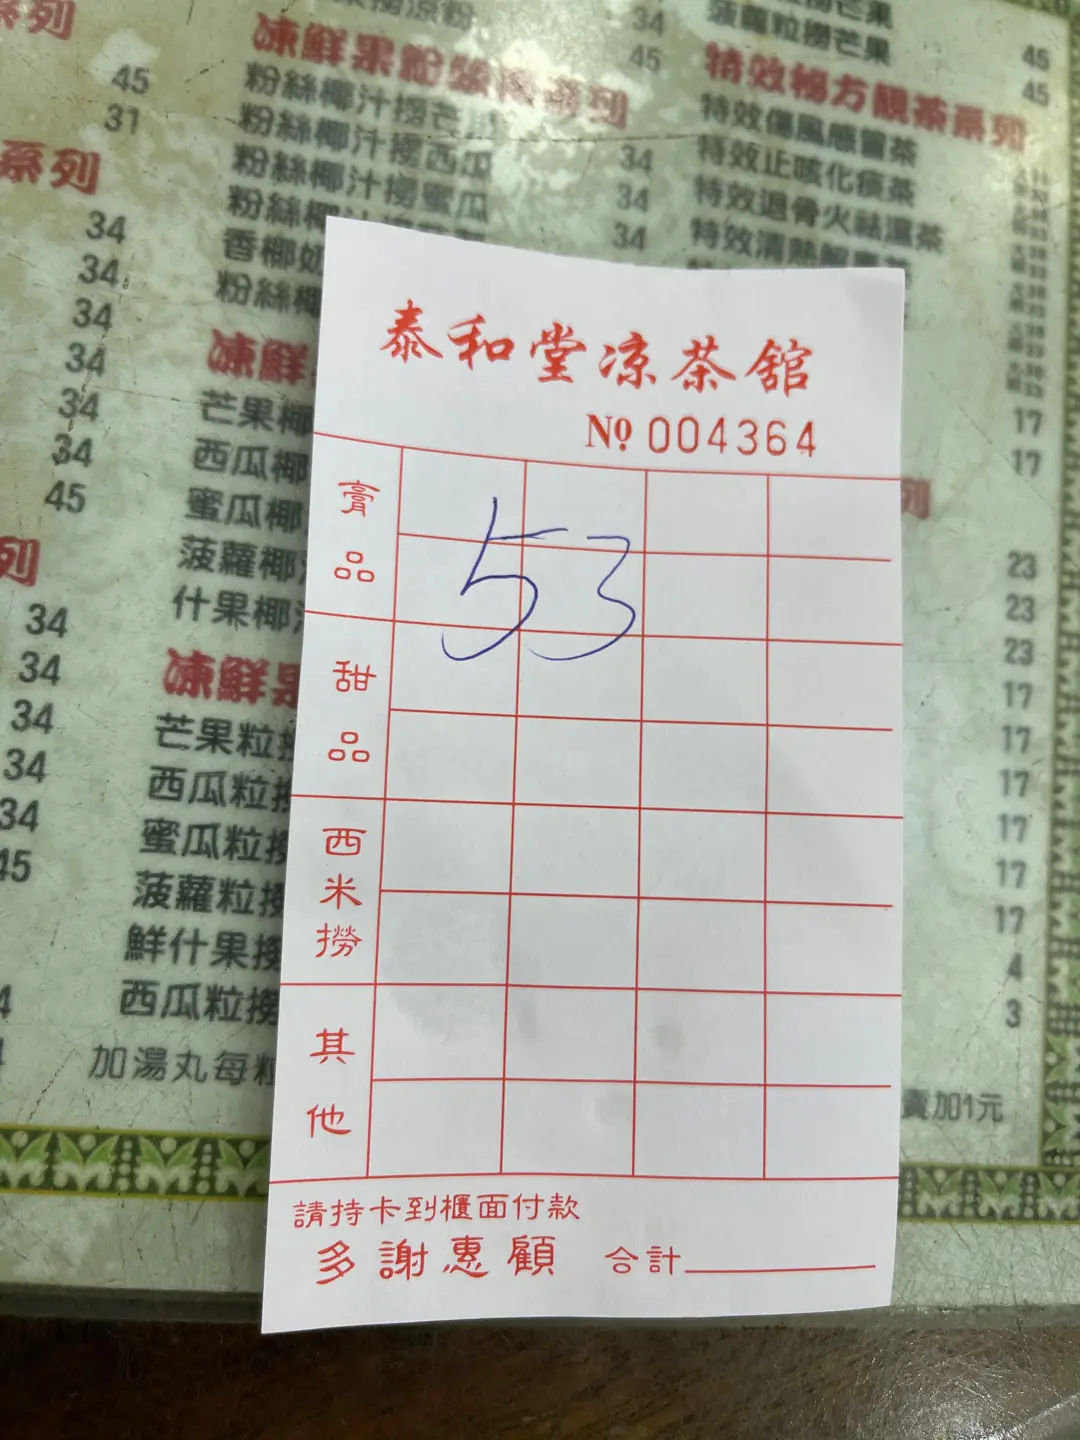 泰和堂涼茶舘
Nº 004364
膏品
53
甜品
西米撈
其他
請持卡到櫃面付款
多謝惠顧 合計
系列
45
31
系列
34
34
34
34
34
34
45
列
34
34
34
34
34
45
34
45
粉絲椰汁撈西瓜 34
粉絲椰汁撈蜜瓜 34
34
粉絲椰
凍鮮
芒果椰
西瓜椰
蜜瓜椰
菠蘿椰
什果椰
凍鮮果
芒果粒撈
西瓜粒撈
蜜瓜粒撈
菠蘿粒撈
鮮什果撈
西瓜粒撈
加湯丸每粒
菠蘿粒撈芒果 45
45
特效傷風感冒茶
特效止咳化痰茶
特效退骨火祛濕茶
17
17
列
23
23
23
17
17
17
17
17
17
4
3
賣加1元